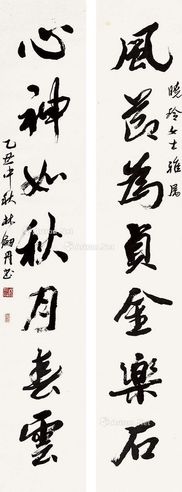 風節為貞金樂石
曉玲女士雅屬
心神如秋月春雲
乙丑中秋林劍丹書